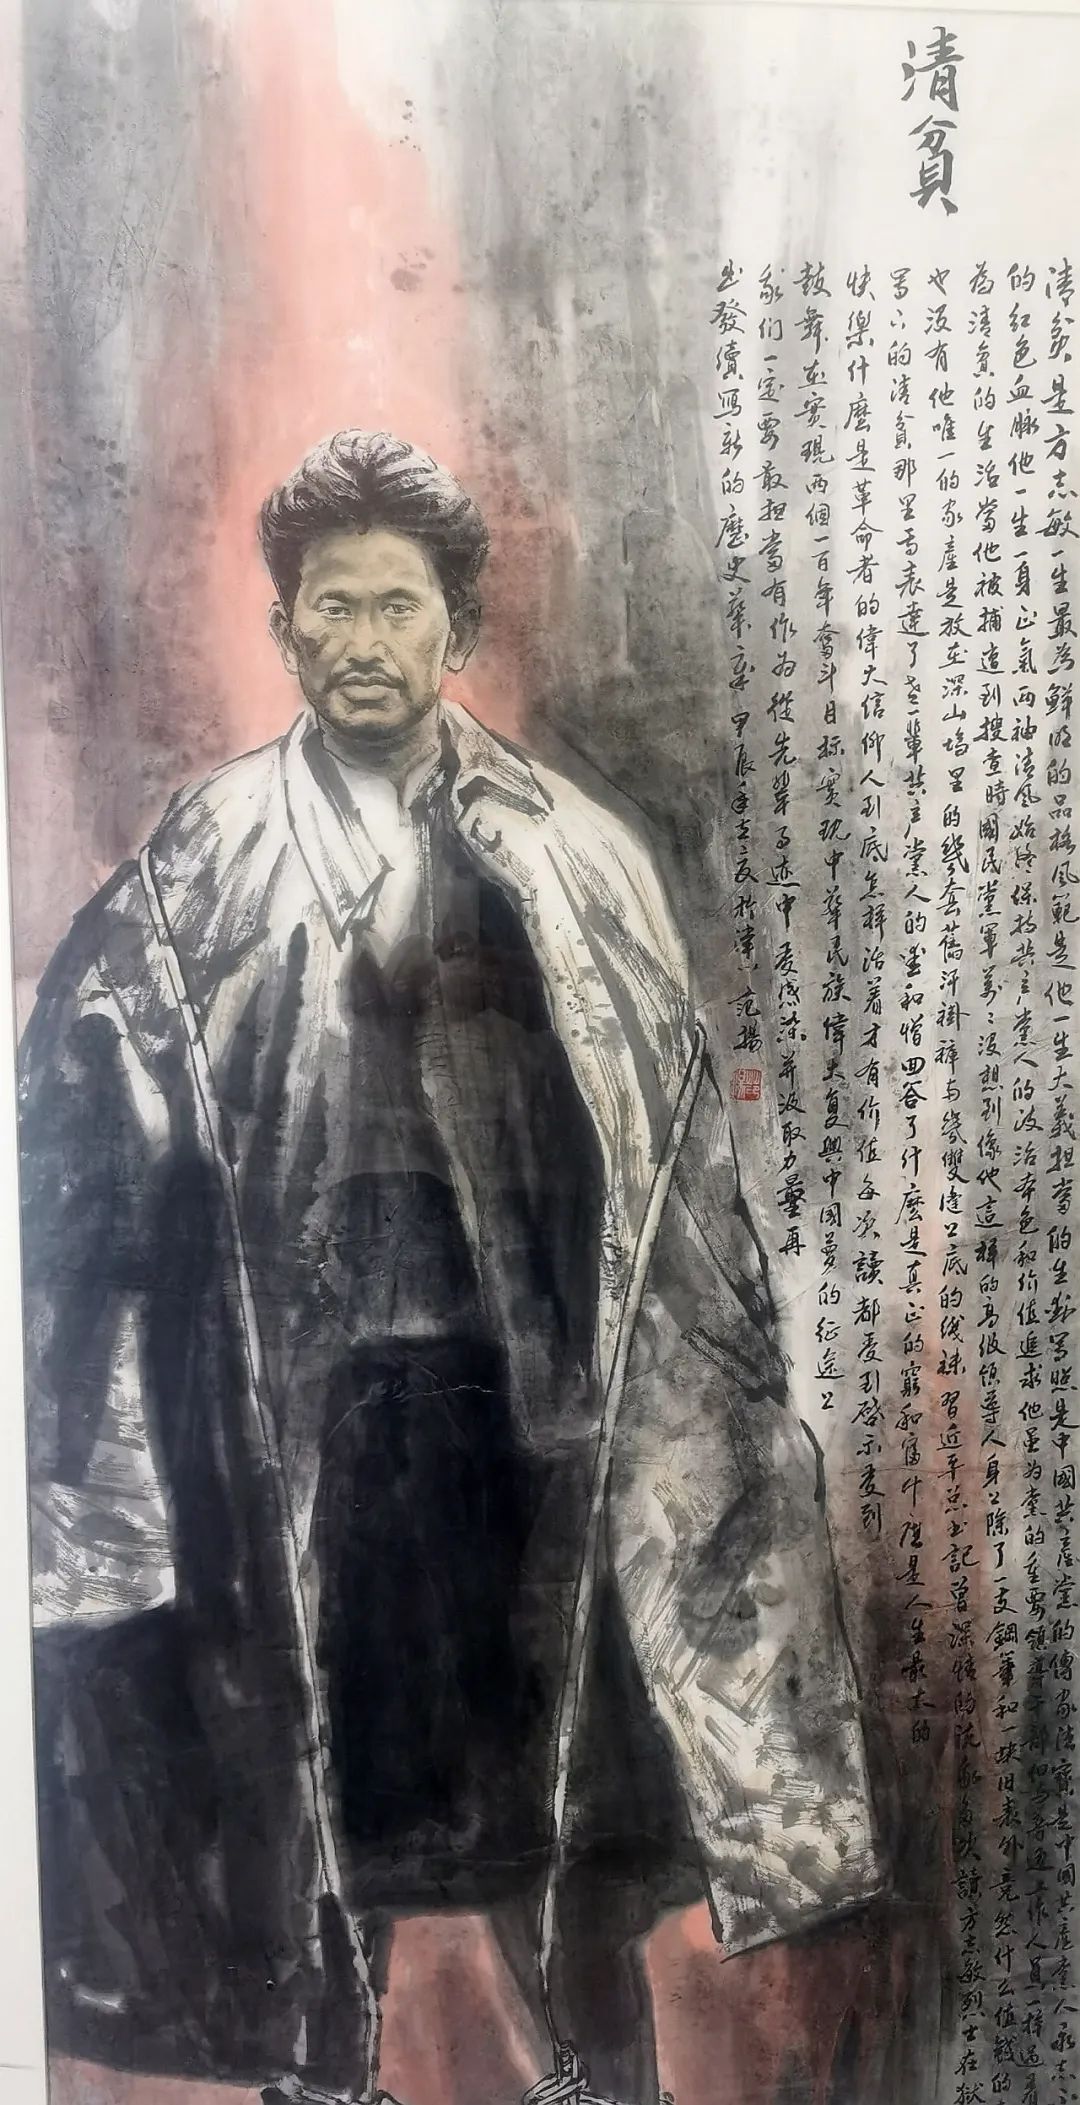 清貧
清貧是方志敏一生最為鮮明的品格風範是他一生大義担當的生動寫照是中國共產黨的傳家法寶是中国共產黨人永志不
的红色血脉他一生一身正氣两袖清風始終保持共產黨人的政治本色和价值追求他虽为黨的重要領導干部但与普通工作人員一样過着
為清貧的生活當他被捕遭到搜查時國民黨軍萬萬没想到像他這样的高級領導人身上除了一支鋼筆和一块旧表外竟然什么值錢的
也没有他唯一的家產是放在深山塢里的幾套舊汗褂褲与幾雙縫上底的线袜習近平总书記曾深情的说我每次讀方志敏烈士在獄
寫下的清貧那里面表達了老一輩共產黨人的愛和憎回答了什麼是真正的窮和富什麼是人生最大的
快樂什麼是革命者的偉大信仰人到底怎样活着才有价值每次讀都受到啓示受到
鼓舞在實現两個一百年奮斗目标實現中華民族偉大复興中國夢的征途上
我们一定要敢担當有作为從先輩事迹中受感染并汲取力量再
出發續寫新的歷史華章 甲辰年 范揚